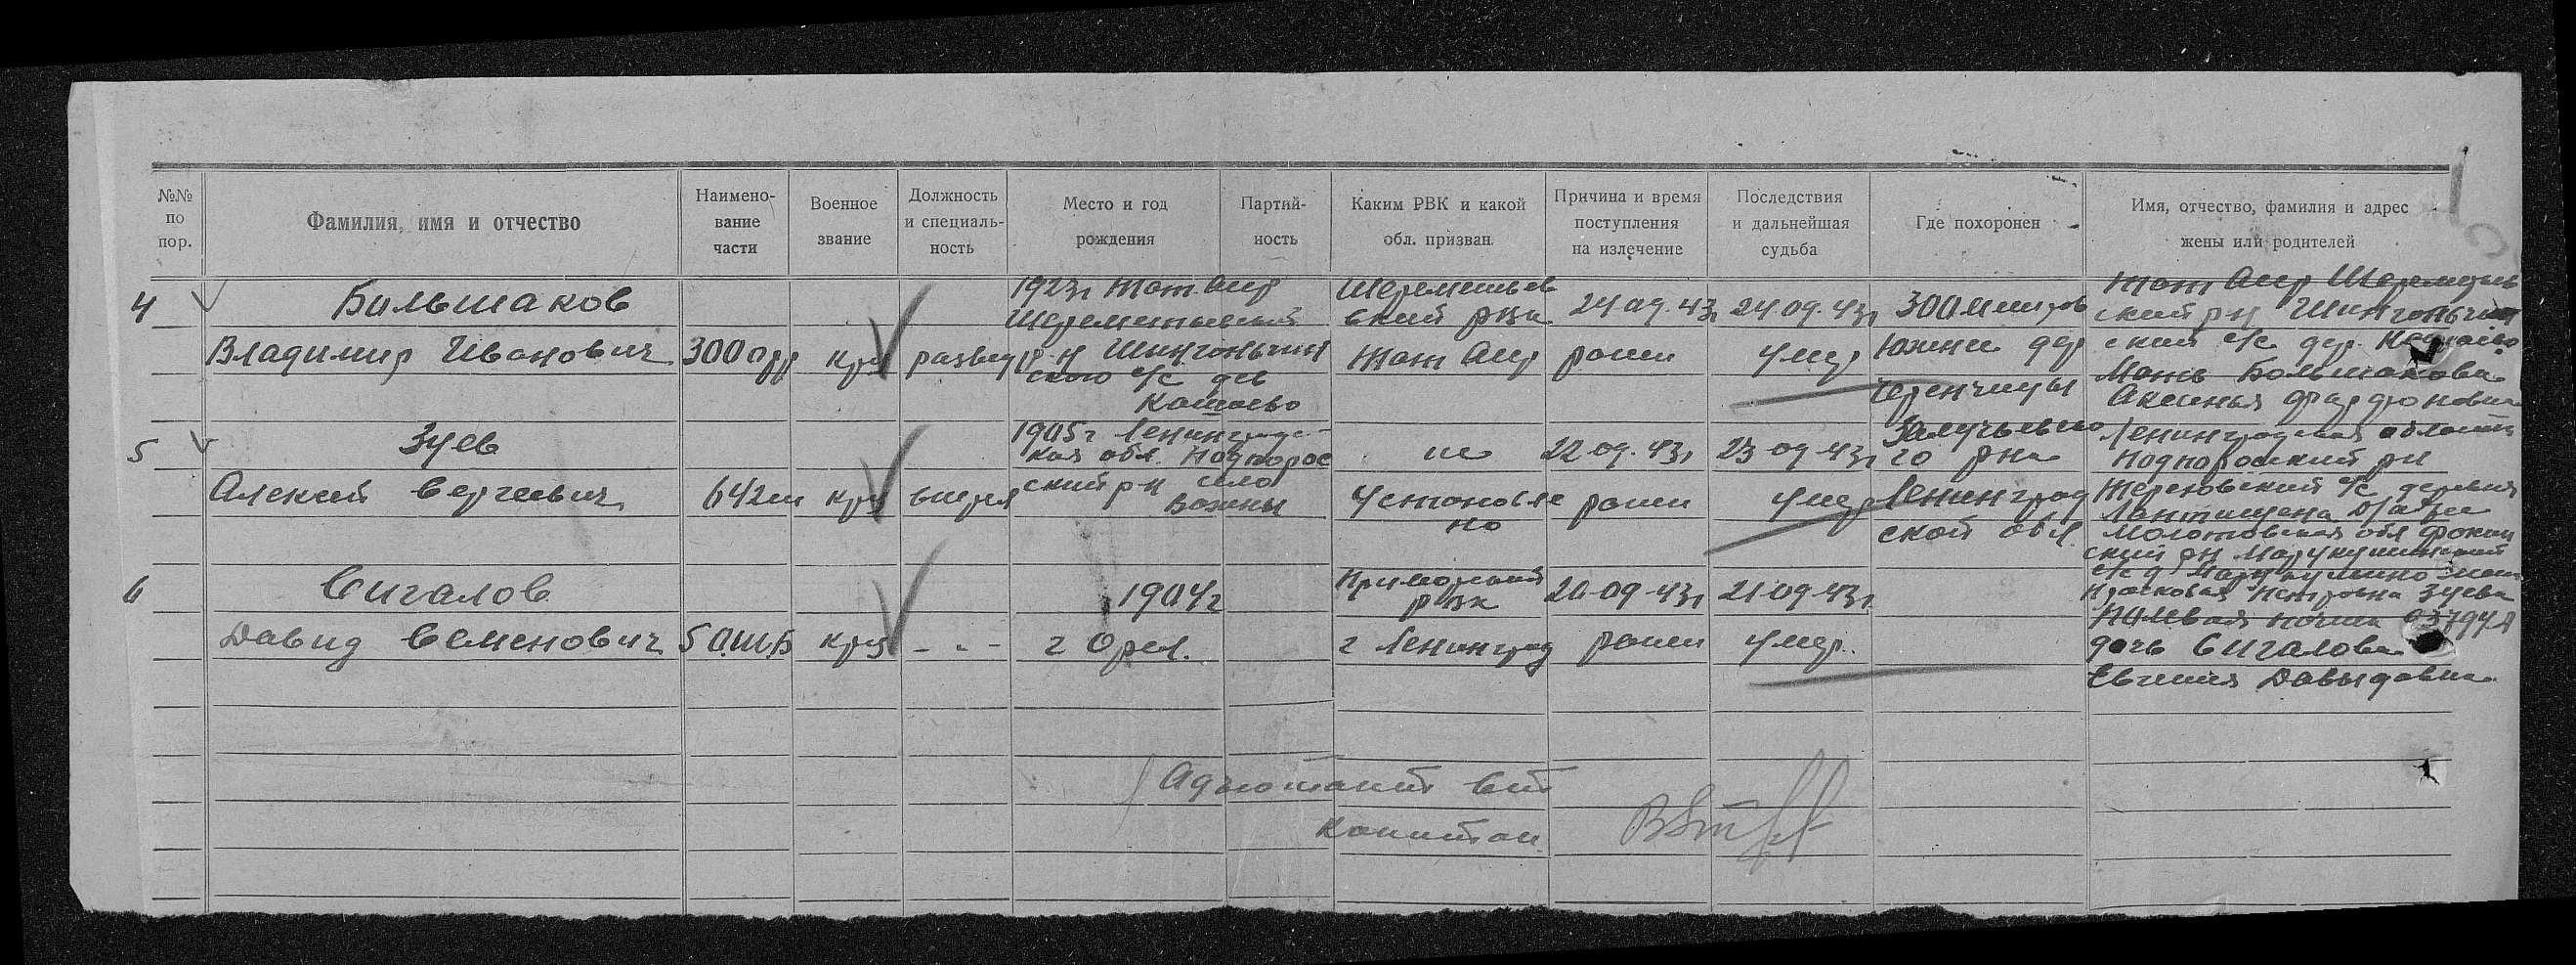 №№ по пор.
Фамилия, имя и отчество
Наимено-
вание
части
Военное
звание
Должность
и специаль-
ность
Место и год
рождения
Партий-
ность
Каким РВК и какой
обл. призван.
Причина и время
поступления
на излечение
Последствия
и дальнейшая
судьба
Где похоронен
Имя, отчество, фамилия и адрес
жены или родителей
4
Большаков
Владимир Иванович
кр-ц
развед
1923г Тат. Асср
Шереметьевский
р-н Шингальчин
ского с/с дер
Шереметьев
ский рвк
Тат Асср
24.09.43г
ранен
24.09.43г
умер
300 метров
Южнее дер
Черенчицы
Залучьевско
го р-на
Ленинград
ской обл.
Тат Асср Шереметьев
ский рн Шингальчин
ский с/с дер.
Мать Большакова
Аксинья
5
Зуев
Алексей Сергеевич
кр-ц
1905г Ленинградс-
кая обл. Подпорож
ский р-н село
Важины
не
установле
но
22.09.43г
ранен
23.09.43г
умер
Ленинградская область
Подпорожский рн
с/с деревня
Молотовская обл Фокин
ский рн
с/с д
Петровна Зуева
6
Сигалов
Давид Семенович
5 ОШБ
кр-ц
- - -
1904г
г Орел.
Приморский
рвк
г Ленинград
20.09.43г
ранен
21.09.43г
умер.
Полевая почта
дочь Сигалова
Евгения Давыдовна
Адъютант
капитан